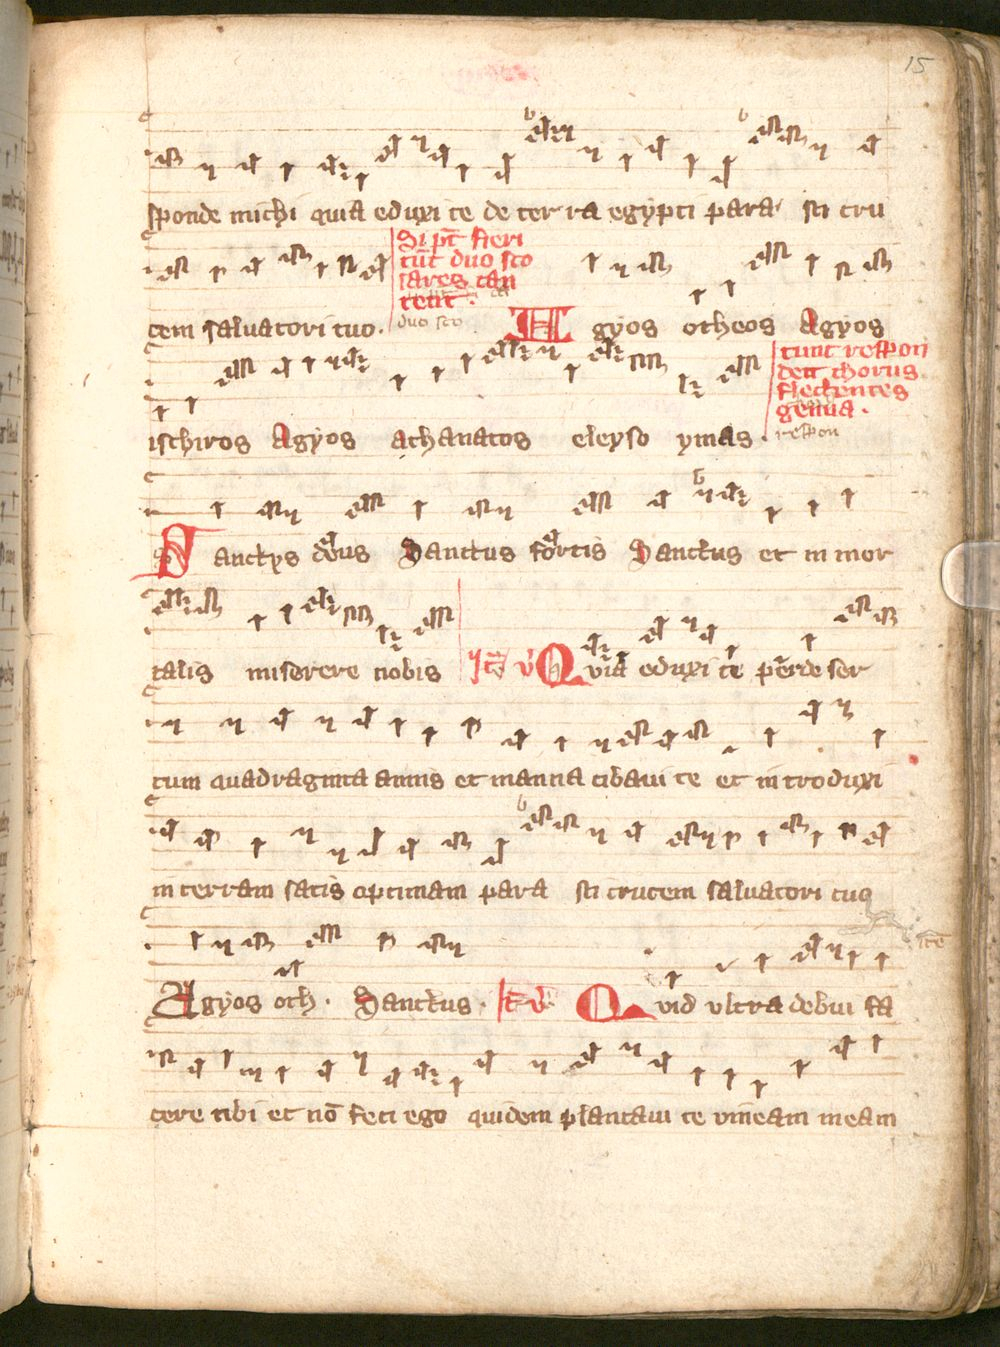 15
sponde michi quia eduxi te de ter ra egypti para sti cru
Si pt̄ fieri
tūt duo sco
lares can
tent.
cem salvatori tuo. duo sco Agyos otheos Agyos
tunc respon
dent chorus
flectentes
genua.
ischiros Agyos athanatos eleyso ymas. respon
Sanctus deus Sanctus fortis Sanctus et in mor
talis miserere nobis Quia eduxi te per deser
tum quadraginta annis et manna cibavi te et in troduxi
in terram satis optimam para sti crucem salvatori tuo
Agyos oth. Sanctus. Quid ultra debui fa
cere tibi et nō feci ego quidem plantavi te vineam meam